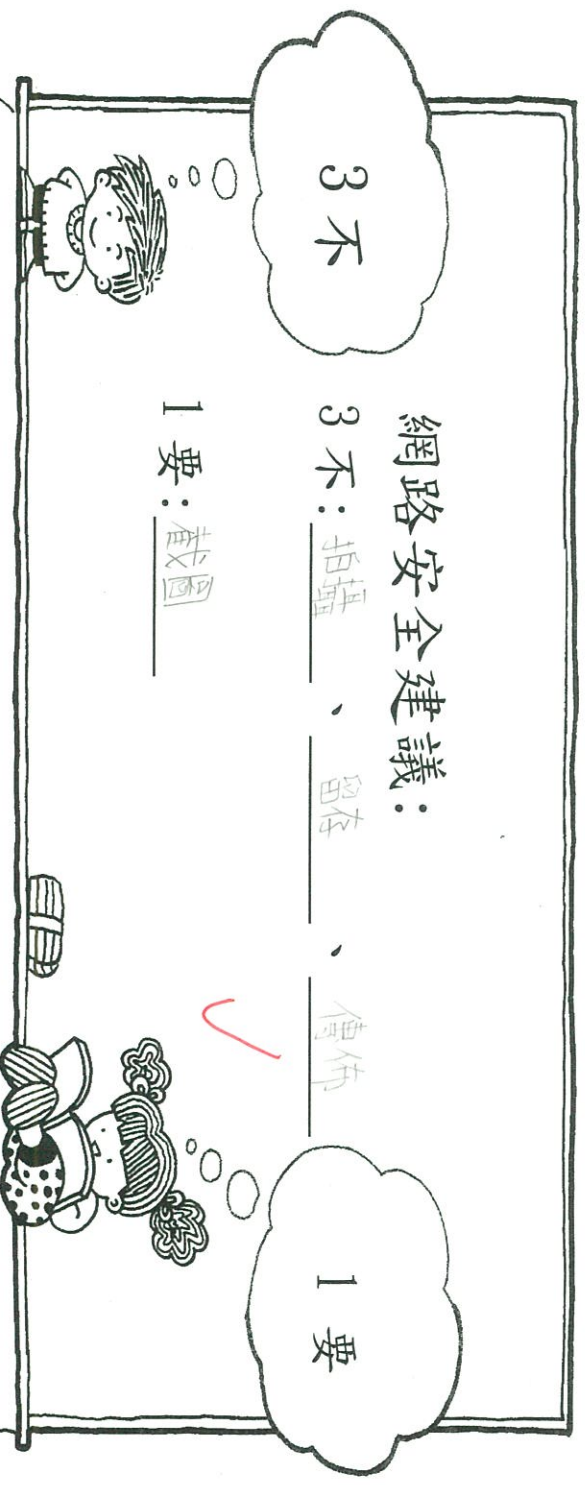 3不
網路安全建議：
3不：拍攝、留存、傳佈
1要：截圖
1要